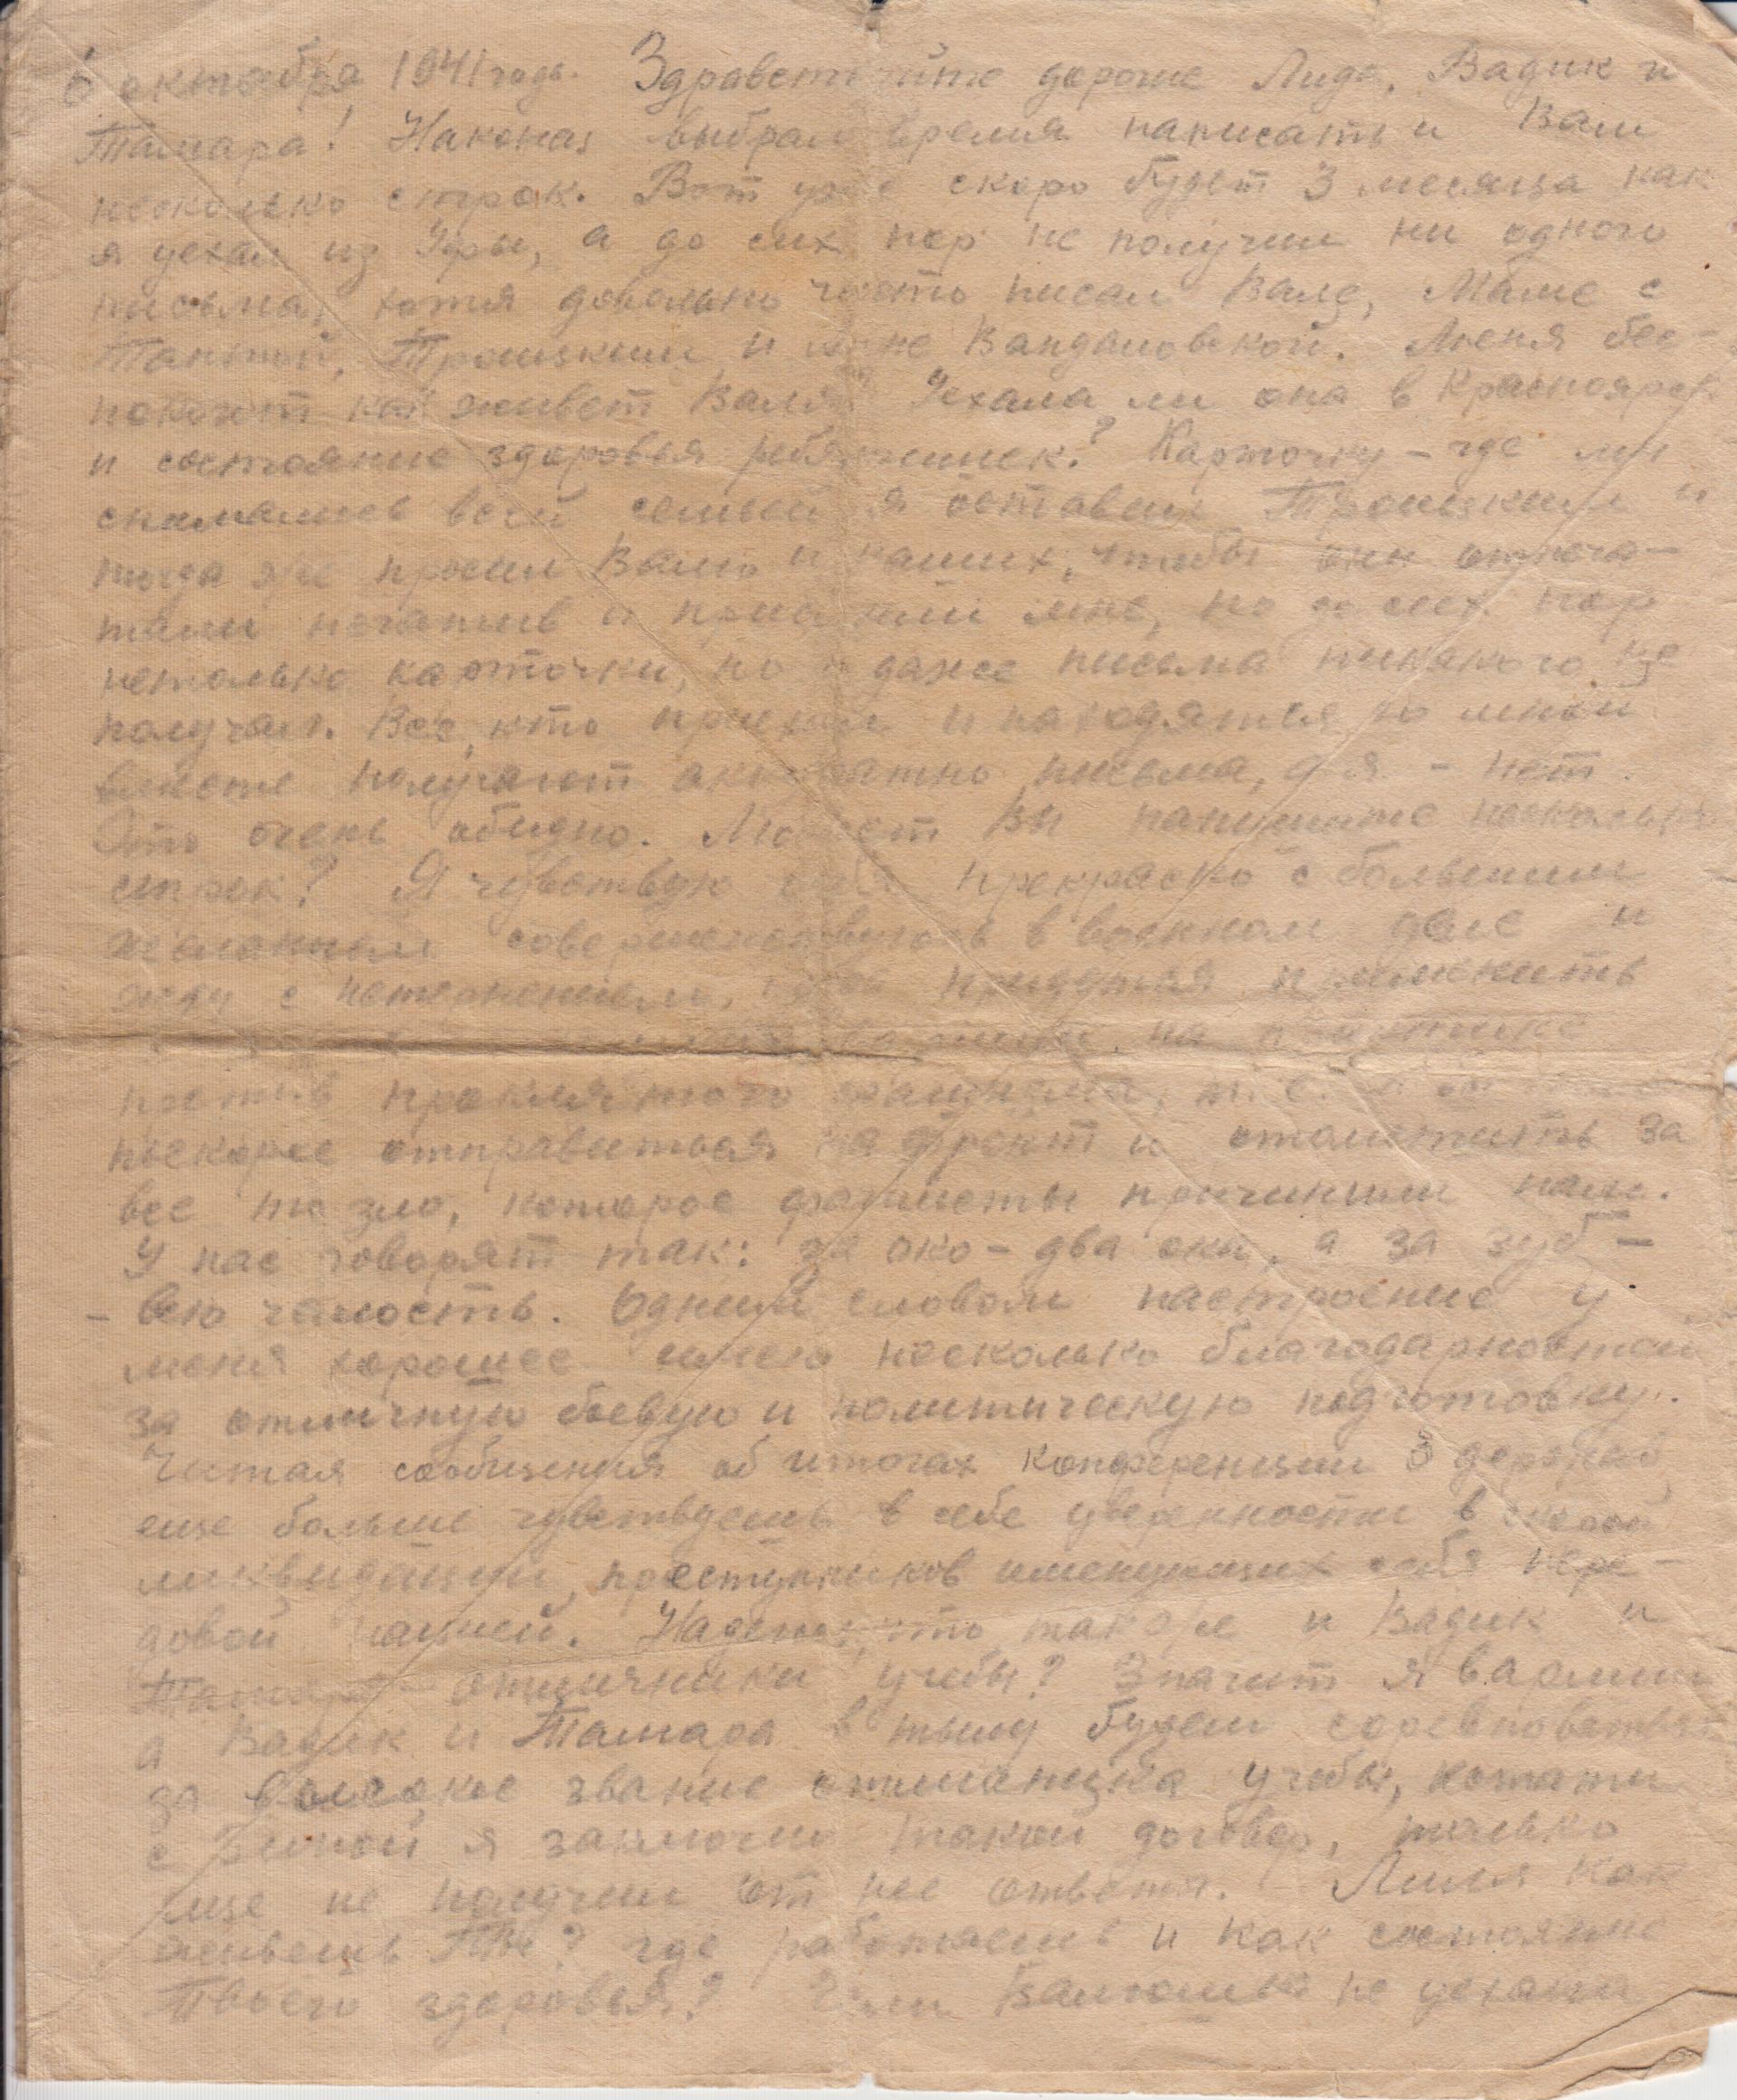 6 октября 1941 года. Здравствуйте дорогие Лида, Вадик и
Тамара! Наконец выбрал время написать и Вам
несколько строк. Вот уже скоро будет 3 месяца как
я уехал из Уфы, а до сих пор не получил ни одного
письма, хотя довольно часто писал Вале, Маме с
Троицким и Вандановской. Меня бес-
покоит как живет Валя? Уехала ли она в Красноярск
и состояние здоровья ребятишек? Карточку – где мы
снимались всей семьей я оставил Троицким и
тогда же просил Валю и наших, чтобы они отпеча-
тали негатив и прислали мне, но до сих пор
нетолько карточки, но и даже письма никакого не
получил. Все, кто приехал и находятся со мной
вместе получают аккуратно письма, а я – нет.
Это очень обидно. Может Вы напишите несколько
строк? Я чувствую себя прекрасно с большим
желанием совершенствуюсь в военном деле и
жду с нетерпением, когда придется применить
на практике
против проклятого фашизма, т.е.
поскорее отправиться на фронт и отомстить за
все то зло, которое фашисты причинили нам.
У нас говорят так: за око – два ока, а за зуб –
– всю челюсть. Одним словом настроение у
меня хорошее имею несколько благодарностей
за отличную боевую и политическую подготовку.
Читая сообщения об итогах конференции 3 держав
еще больше чувствуешь в себе уверенности в скорой
ликвидации преступников именующих себя пере-
довой нацией. Надеюсь, что также и Вадик и
Тамара – отличники учебы? Значит я в армии
а Вадик и Тамара в тылу будем соревноваться
за высокое звание отличника учебы, кстати
с Риммой я заключил такой договор, только
еще не получил от нее ответа. – Лиля как
живешь Ты? где работаешь и как состояние
Твоего здоровья? Если Валюша не уехала